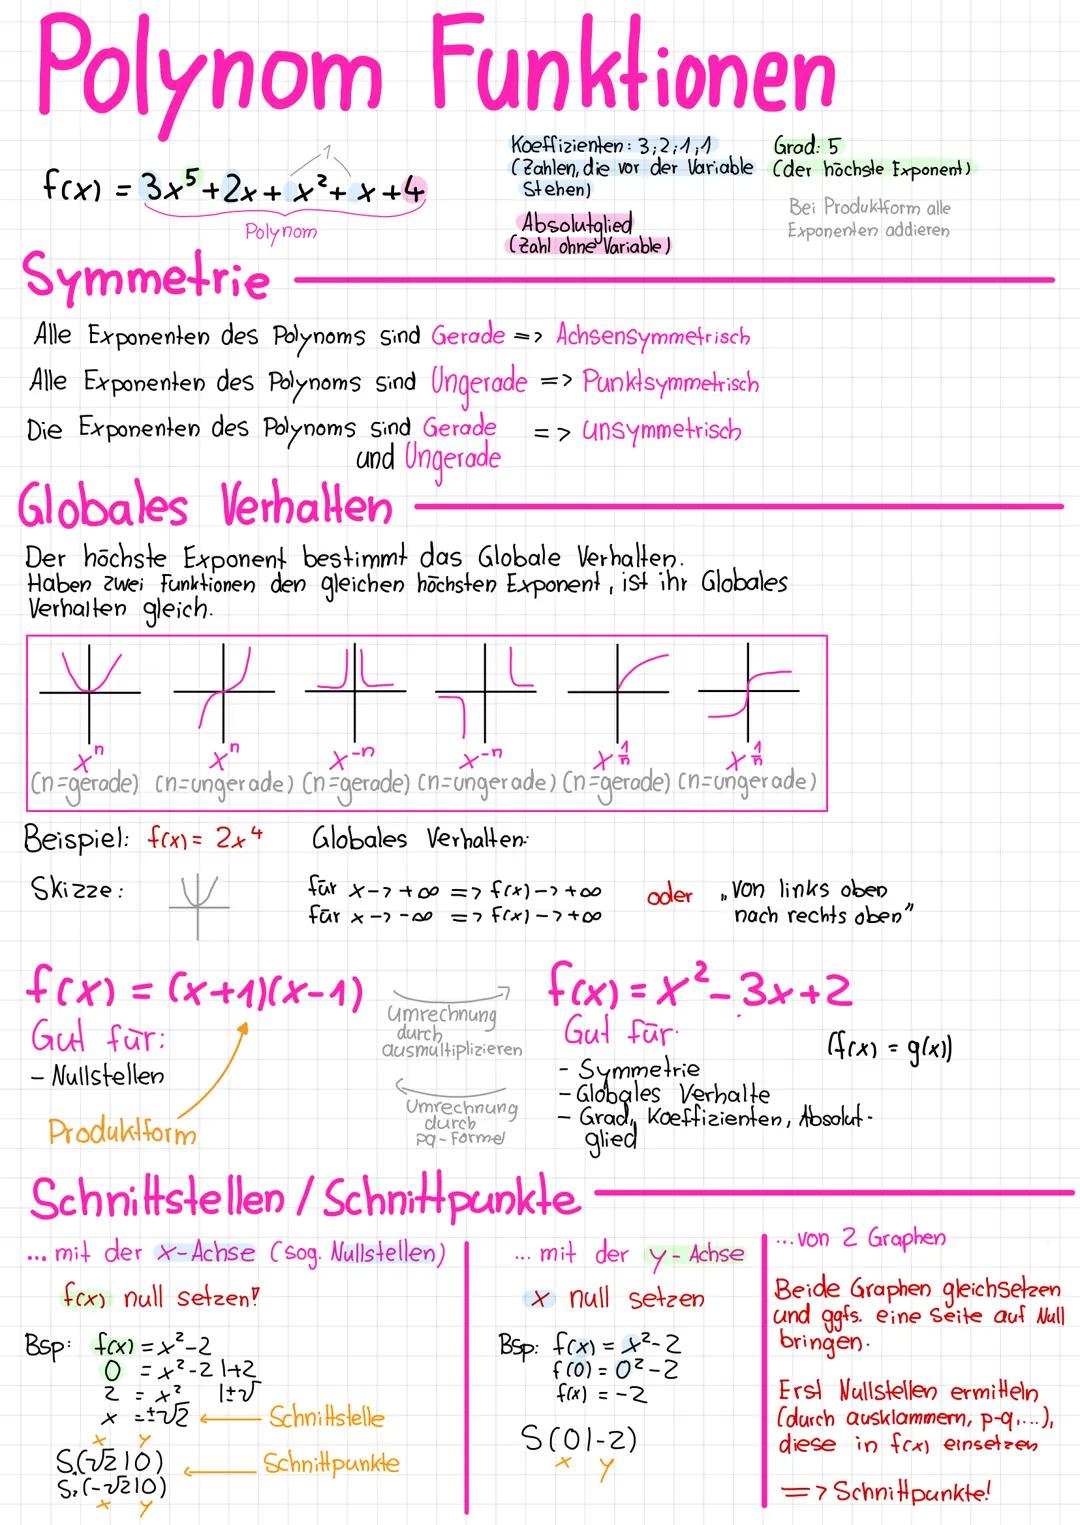 Polynom Funktionen
1
f(x) = 3x⁵+2x+ x²+ x +4
Polynom
Koeffizienten: 3;2;1;1
(Zahlen, die vor der Variable
Stehen)
Absolutglied
(Zahl ohne Variable)
Grad: 5
(der höchste Exponent)
Bei Produktform alle
Exponenten addieren
Symmetrie
Alle Exponenten des Polynoms sind Gerade => Achsensymmetrisch
Alle Exponenten des Polynoms sind Ungerade => Punktsymmetrisch
Die Exponenten des Polynoms sind Gerade => unsymmetrisch
und Ungerade
Globales Verhalten
Der höchste Exponent bestimmt das Globale Verhalten.
Haben zwei Funktionen den gleichen höchsten Exponent, ist ihr Globales
Verhalten gleich.
xⁿ xⁿ x⁻ⁿ x⁻ⁿ x^(1/n) x^(1/n)
(n=gerade) (n=ungerade) (n=gerade) (n=ungerade) (n=gerade) (n=ungerade)
Beispiel: f(x) = 2x⁴ Globales Verhalten:
Skizze:
für x -> +∞ => f(x) -> +∞
für x -> -∞ => f(x) -> +∞
oder
„von links oben
nach rechts oben"
f(x) = (x+1)(x-1)
Gut für:
- Nullstellen
Produktform
Umrechnung
durch
ausmultiplizieren
Umrechnung
durch
pq-Formel
f(x) = x²-3x+2
Gut für:
(f(x) = g(x))
- Symmetrie
- Globales Verhalte
- Grad, Koeffizienten, Absolut-
glied
Schnittstellen / Schnittpunkte
... mit der x-Achse (sog. Nullstellen)
f(x) null setzen!
Bsp: f(x) = x²-2
0 = x²-2 |+2
2 = x² |±√
x = ±√2
Schnittstelle
x y
S₁(√2|0)
Schnittpunkte
S₂(-√2|0)
x y
... mit der y-Achse
x null setzen
Bsp: f(x) = x²-2
f(0) = 0²-2
f(x) = -2
S(0|-2)
x y
... von 2 Graphen
Beide Graphen gleichsetzen
und ggfs. eine Seite auf Null
bringen.
Erst Nullstellen ermitteln
(durch ausklammern, p-q,...),
diese in f(x) einsetzen
=> Schnittpunkte!